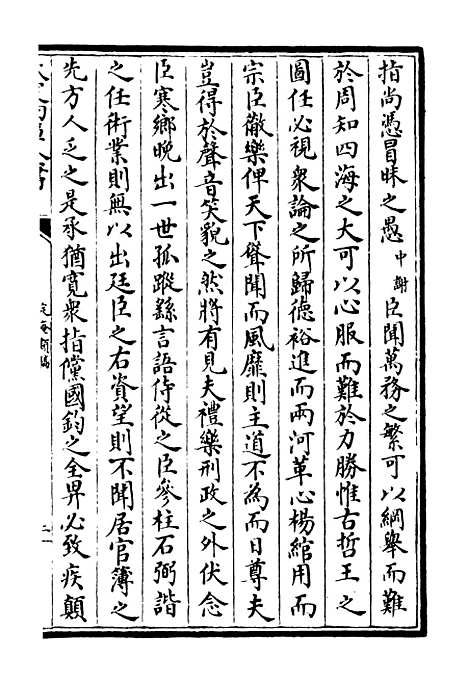 指尚憑冒昧之愚中謝臣聞萬務之繁可以綱舉而難
於周知四海之大可以心服而難於力勝惟古哲王之
圖任必視衆論之所歸德裕進而兩河革心楊綰用而
宗臣徹樂俾天下聳聞而風靡則主道不為而日尊夫
豈得於聲音笑貌之然將有見夫禮樂刑政之外伏念
臣寒鄉晚出一世孤蹤繇言語侍從之臣參柱石弼諧
之任術業則無以出廷臣之右資望則不聞居官簿之
先方人乏之是承猶寛衆指儻國鈞之全畀必致疾顛